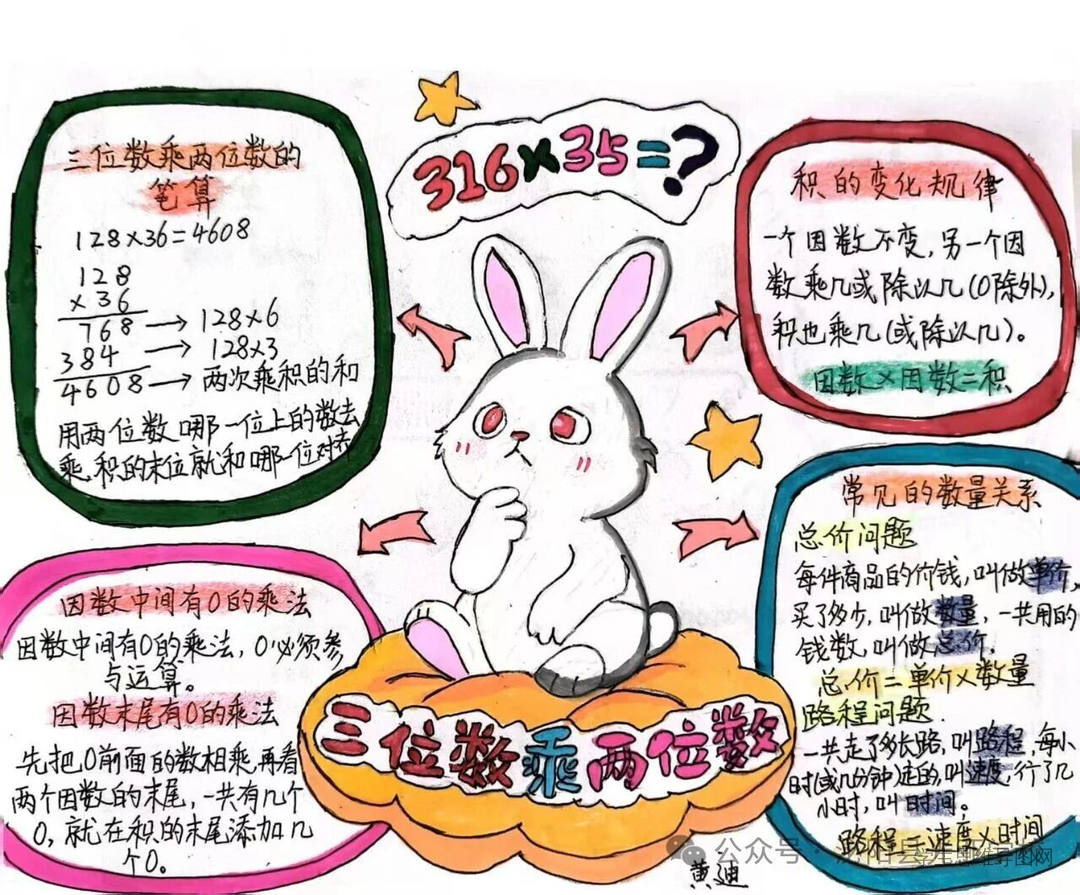 316×35=?
三位数乘两位数的
笔算
128×36=4608
128
×36
768 → 128×6
384 → 128×3
4608 → 两次乘积的和
用两位数哪一位上的数去
乘,积的末位就和哪一位对齐
积的变化规律
一个因数不变,另一个因
数乘几或除以几(0除外),
积也乘几(或除以几)。
因数×因数=积
因数中间有0的乘法
因数中间有0的乘法,0必须参
与运算。
因数末尾有0的乘法
先把0前面的数相乘,再看
两个因数的末尾,一共有几个
0,就在积的末尾添加几
个0。
常见的数量关系
总价问题
每件商品的价钱,叫做单价,
买了多少,叫做数量,一共用的
钱数,叫做总价.
总价=单价×数量
路程问题.
一共走了多长路,叫路程,每小
时(或几分钟)走的,叫速度,行了几
小时,叫时间。
路程=速度×时间
三位数乘两位数
黄迪
公众号
思维导图网